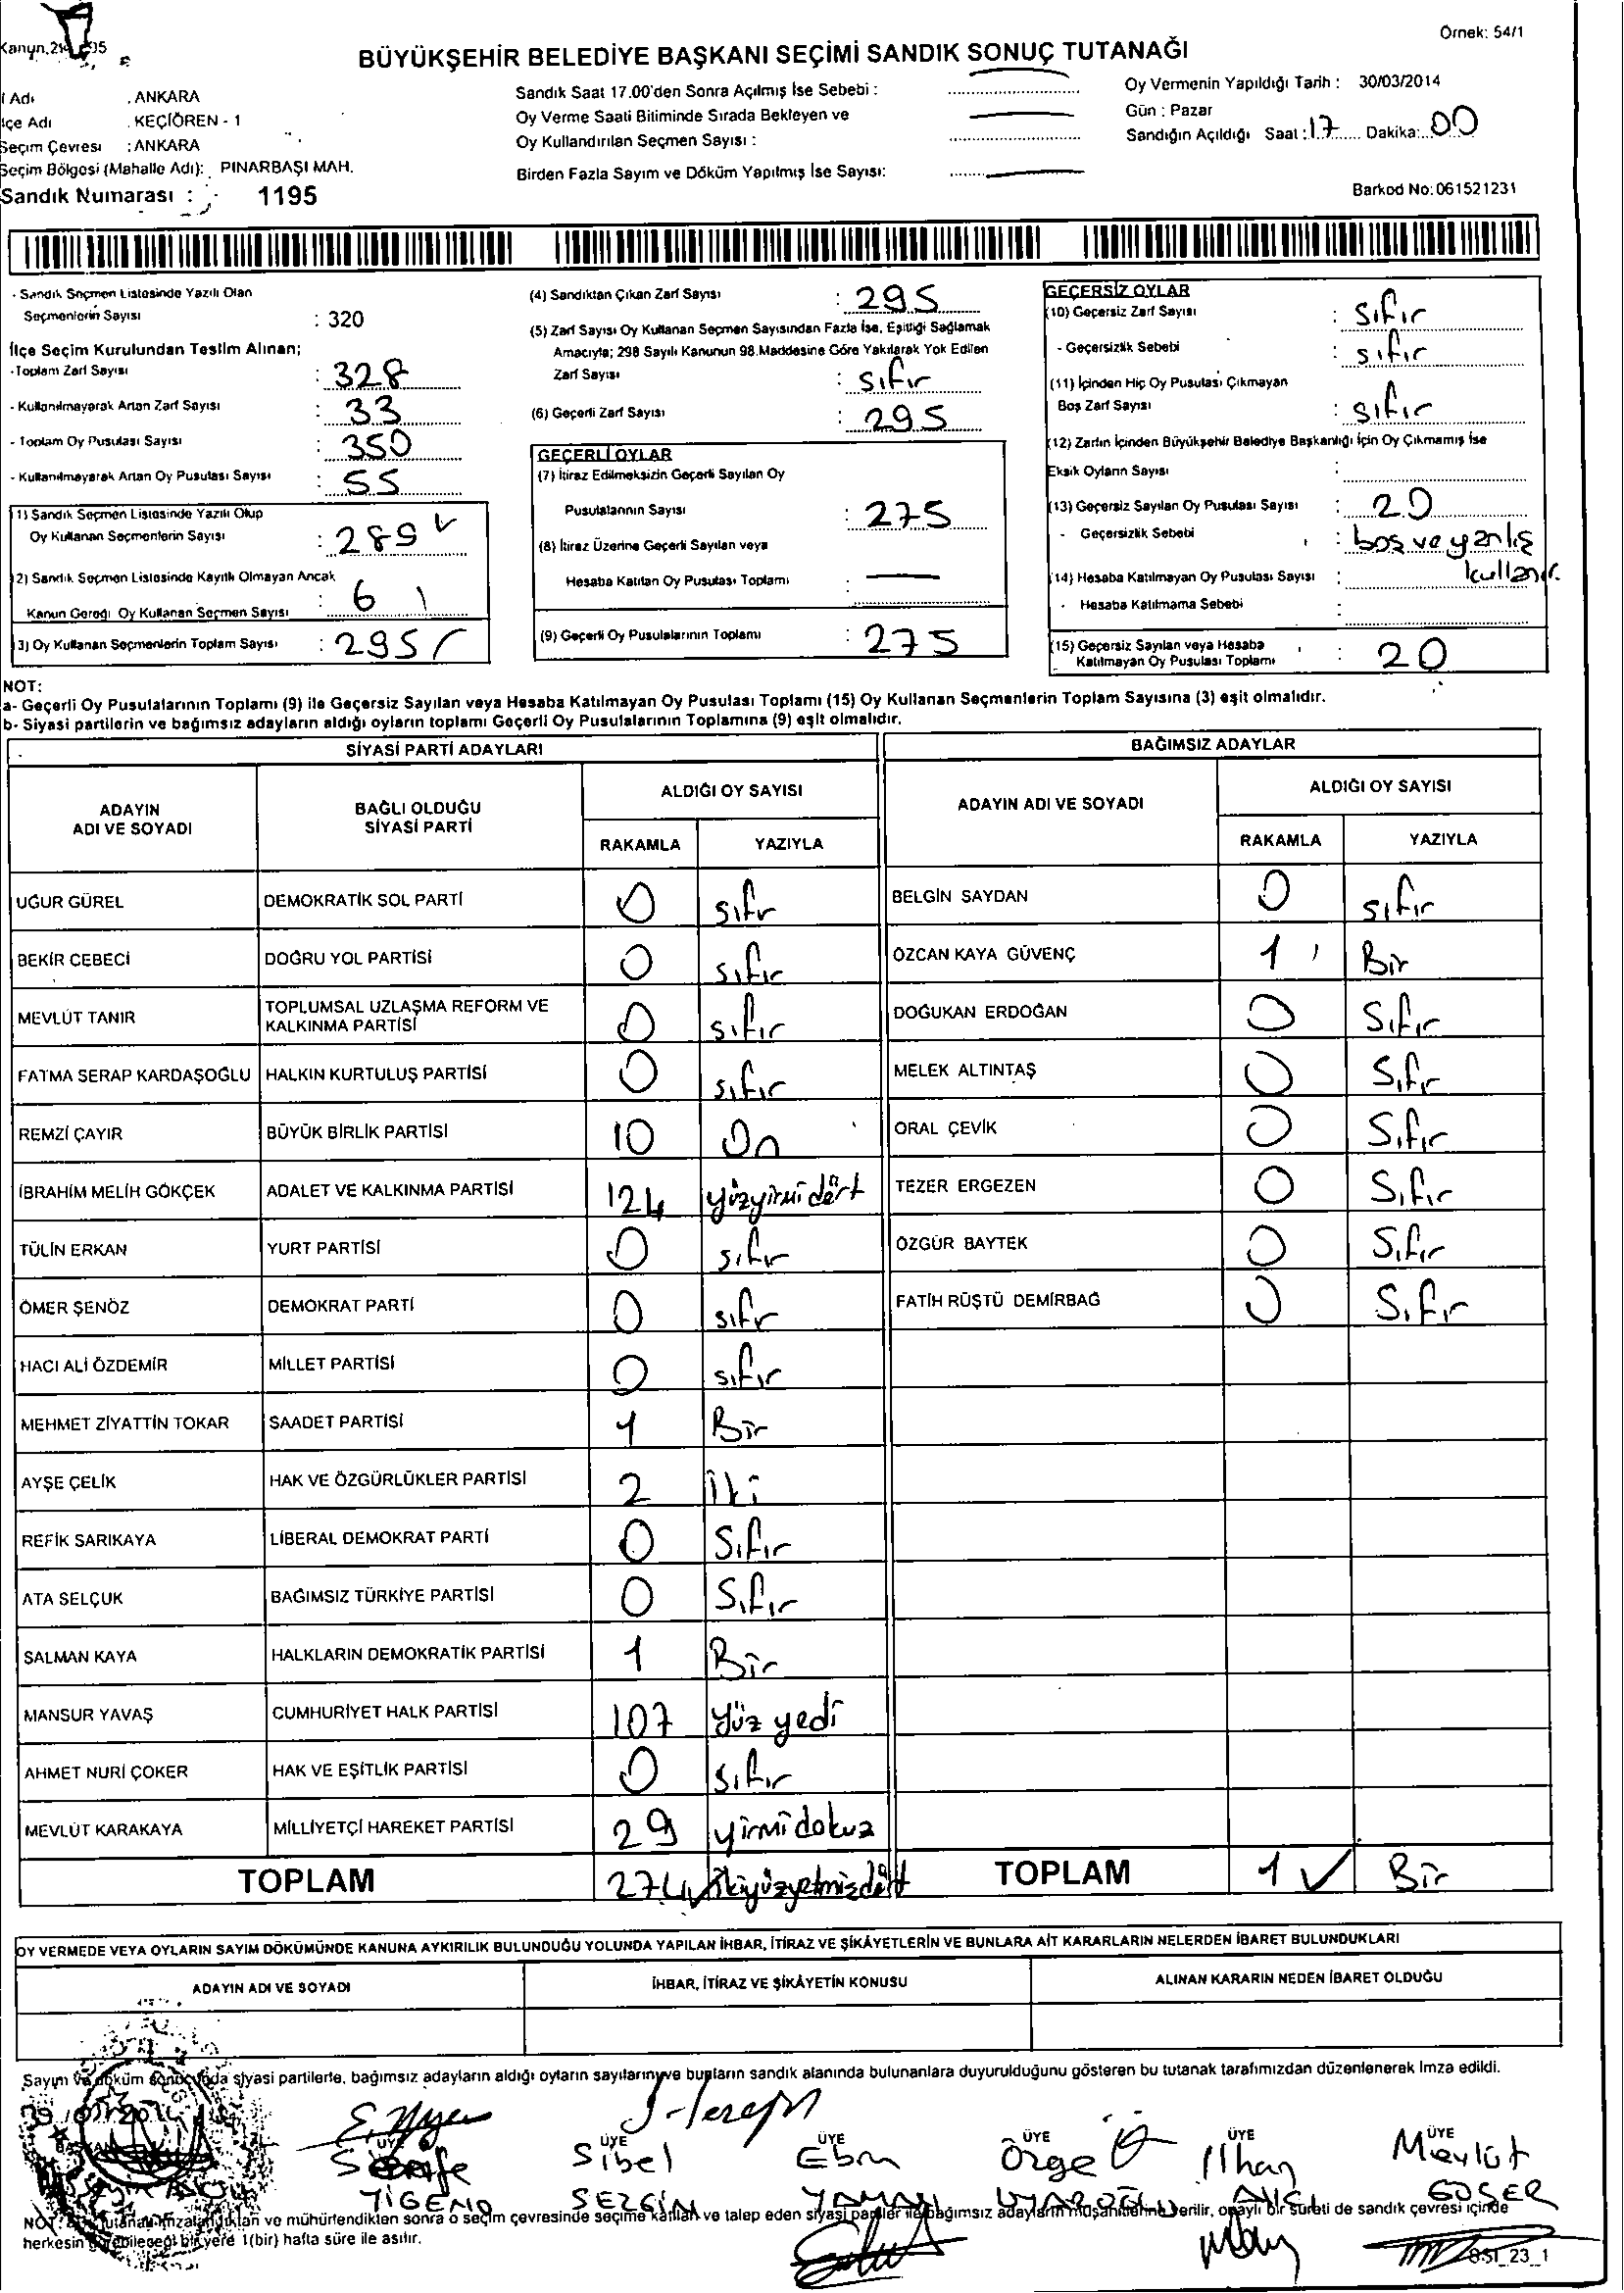 Örnek: 54/1
BÜYÜKŞEHİR BELEDİYE BAŞKANI SEÇİMİ SANDIK SONUÇ TUTANAĞI
Adı : ANKARA
İlçe Adı : KEÇİÖREN - 1
Seçim Çevresi : ANKARA
Seçim Bölgesi (Mahalle Adı): PINARBAŞI MAH.
Sandık Numarası : 1195
Sandık Saat 17.00'den Sonra Açılmış İse Sebebi :
Oy Verme Saati Bitiminde Sırada Bekleyen ve
Oy Kullandırılan Seçmen Sayısı :
Birden Fazla Sayım ve Döküm Yapılmış İse Sayısı:
Oy Vermenin Yapıldığı Tarih : 30/03/2014
Gün : Pazar
Sandığın Açıldığı Saat : 17 Dakika: 00
Barkod No: 061521231
- Sandık Seçmen Listesinde Yazılı Olan
Seçmenlerin Sayısı : 320
İlçe Seçim Kurulundan Teslim Alınan;
-Toplam Zarf Sayısı : 328
- Kullanılmayarak Artan Zarf Sayısı : 33
- Toplam Oy Pusulası Sayısı : 350
- Kullanılmayarak Artan Oy Pusulası Sayısı : 55
(1) Sandık Seçmen Listesinde Yazılı Olup
Oy Kullanan Seçmenlerin Sayısı : 289
(2) Sandık Seçmen Listesinde Kayıtlı Olmayan Ancak
Kanun Gereği Oy Kullanan Seçmen Sayısı : 6
(3) Oy Kullanan Seçmenlerin Toplam Sayısı : 295
(4) Sandıktan Çıkan Zarf Sayısı : 295
(5) Zarf Sayısı Oy Kullanan Seçmen Sayısından Fazla İse, Eşitliği Sağlamak
Amacıyla; 298 Sayılı Kanunun 98.Maddesine Göre Yakılarak Yok Edilen
Zarf Sayısı : sıfır
(6) Geçerli Zarf Sayısı : 295
GEÇERLİ OYLAR
(7) İtiraz Edilmeksizin Geçerli Sayılan Oy
Pusulalarının Sayısı : 275
(8) İtiraz Üzerine Geçerli Sayılan veya
Hesaba Katılan Oy Pusulası Toplamı : —
(9) Geçerli Oy Pusulalarının Toplamı : 275
GEÇERSİZ OYLAR
(10) Geçersiz Zarf Sayısı : sıfır
- Geçersizlik Sebebi : sıfır
(11) İçinden Hiç Oy Pusulası Çıkmayan
Boş Zarf Sayısı : sıfır
(12) Zarfın İçinden Büyükşehir Belediye Başkanlığı İçin Oy Çıkmamış İse
Eksik Oyların Sayısı :
(13) Geçersiz Sayılan Oy Pusulası Sayısı : 20
- Geçersizlik Sebebi : boş ve yanlış
kullanır.
(14) Hesaba Katılmayan Oy Pusulası Sayısı :
- Hesaba Katılmama Sebebi :
(15) Geçersiz Sayılan veya Hesaba
Katılmayan Oy Pusulası Toplamı : 20
NOT:
a- Geçerli Oy Pusulalarının Toplamı (9) ile Geçersiz Sayılan veya Hesaba Katılmayan Oy Pusulası Toplamı (15) Oy Kullanan Seçmenlerin Toplam Sayısına (3) eşit olmalıdır.
b- Siyasi partilerin ve bağımsız adayların aldığı oyların toplamı Geçerli Oy Pusulalarının Toplamına (9) eşit olmalıdır.
SİYASİ PARTİ ADAYLARI
ADAYIN ADI VE SOYADI BAĞLI OLDUĞU SİYASİ PARTİ ALDIĞI OY SAYISI
RAKAMLA YAZIYLA
UĞUR GÜREL DEMOKRATİK SOL PARTİ 0 sıfır
BEKİR CEBECİ DOĞRU YOL PARTİSİ 0 sıfır
MEVLÜT TANIR TOPLUMSAL UZLAŞMA REFORM VE KALKINMA PARTİSİ 0 sıfır
FATMA SERAP KARDAŞOĞLU HALKIN KURTULUŞ PARTİSİ 0 sıfır
REMZİ ÇAYIR BÜYÜK BİRLİK PARTİSİ 10 On
İBRAHİM MELİH GÖKÇEK ADALET VE KALKINMA PARTİSİ 124 yüzyirmi dört
TÜLİN ERKAN YURT PARTİSİ 0 sıfır
ÖMER ŞENÖZ DEMOKRAT PARTİ 0 sıfır
HACI ALİ ÖZDEMİR MİLLET PARTİSİ 0 sıfır
MEHMET ZİYATTİN TOKAR SAADET PARTİSİ 1 Bir
AYŞE ÇELİK HAK VE ÖZGÜRLÜKLER PARTİSİ 2 İki
REFİK SARIKAYA LİBERAL DEMOKRAT PARTİ 0 Sıfır
ATA SELÇUK BAĞIMSIZ TÜRKİYE PARTİSİ 0 Sıfır
SALMAN KAYA HALKLARIN DEMOKRATİK PARTİSİ 1 Bir
MANSUR YAVAŞ CUMHURİYET HALK PARTİSİ 107 yüz yedi
AHMET NURİ ÇOKER HAK VE EŞİTLİK PARTİSİ 0 sıfır
MEVLÜT KARAKAYA MİLLİYETÇİ HAREKET PARTİSİ 29 yirmi dokuz
TOPLAM 274 ikiyüzyetmişdört
BAĞIMSIZ ADAYLAR
ADAYIN ADI VE SOYADI ALDIĞI OY SAYISI
RAKAMLA YAZIYLA
BELGİN SAYDAN 0 sıfır
ÖZCAN KAYA GÜVENÇ 1 Bir
DOĞUKAN ERDOĞAN 0 Sıfır
MELEK ALTINTAŞ 0 Sıfır
ORAL ÇEVİK 0 Sıfır
TEZER ERGEZEN 0 Sıfır
ÖZGÜR BAYTEK 0 Sıfır
FATİH RÜŞTÜ DEMİRBAĞ 0 Sıfır
TOPLAM 1 Bir
OY VERMEDE VEYA OYLARIN SAYIM DÖKÜMÜNDE KANUNA AYKIRILIK BULUNDUĞU YOLUNDA YAPILAN İHBAR, İTİRAZ VE ŞİKÂYETLERİN VE BUNLARA AİT KARARLARIN NELERDEN İBARET BULUNDUKLARI
ADAYIN ADI VE SOYADI İHBAR, İTİRAZ VE ŞİKÂYETİN KONUSU ALINAN KARARIN NEDEN İBARET OLDUĞU
Sayım ve döküm sonucunda siyasi partilerle, bağımsız adayların aldığı oyların sayılarını ve bunların sandık alanında bulunanlara duyurulduğunu gösteren bu tutanak tarafımızdan düzenlenerek imza edildi.
ÜYE ÜYE ÜYE ÜYE ÜYE ÜYE
Şerife Sibel Özge İlhan Mevlüt
SEZGİN YAMAN AVCI
ve mühürlendikten sonra o seçim çevresinde seçime katılan ve talep eden siyasi partiler ile bağımsız adayların müşahitlerine verilir, onaylı bir sureti de sandık çevresi içinde
herkesin görebileceği bir yere 1(bir) hafta süre ile asılır.
SSI_23_1